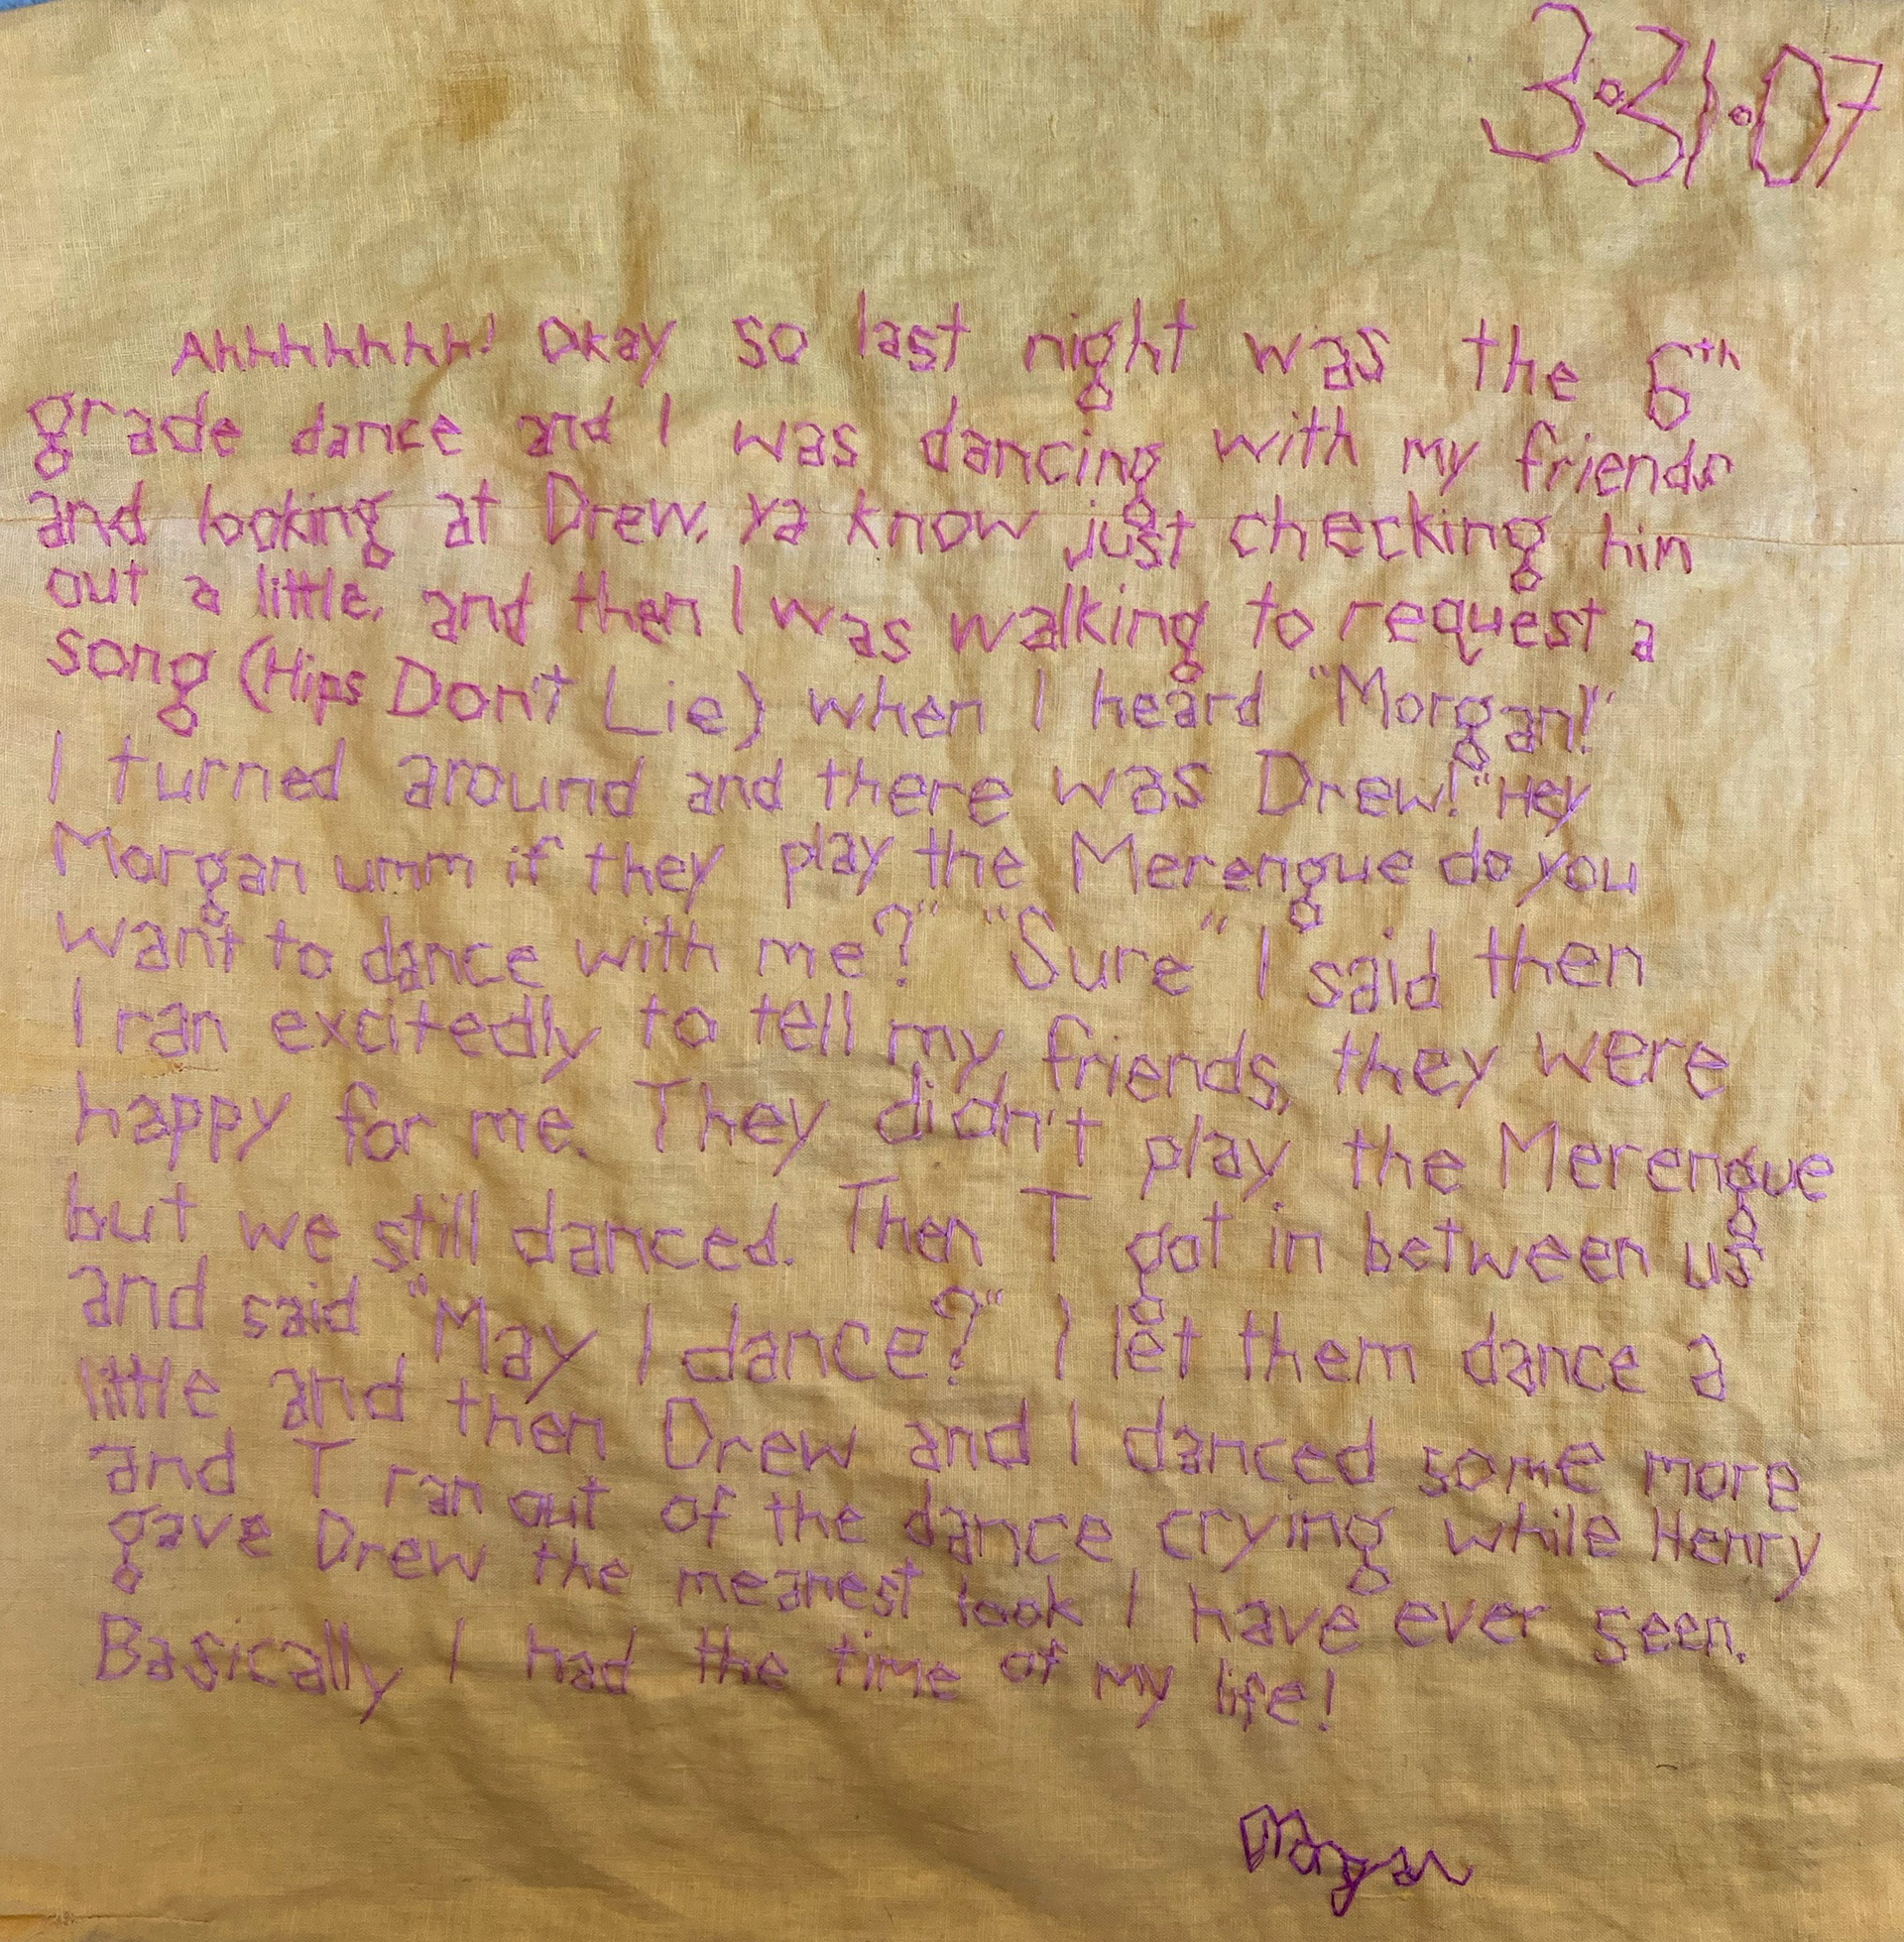 3•31•07
Ahhhhhhh! Okay so last night was the 6th
grade dance and I was dancing with my friends
and looking at Drew. Ya know just checking him
out a little, and then I was walking to request a
song (Hips Don't Lie) when I heard "Morgan!"
I turned around and there was Drew! "Hey
Morgan umm if they play the Merengue do you
want to dance with me?" "Sure" I said then
I ran excitedly to tell my friends, they were
happy for me. They didn't play the Merengue
but we still danced. Then T got in between us
and said "May I dance?" I let them dance a
little and then Drew and I danced some more
and T ran out of the dance crying while Henry
gave Drew the meanest look I have ever seen.
Basically I had the time of my life!
Morgan